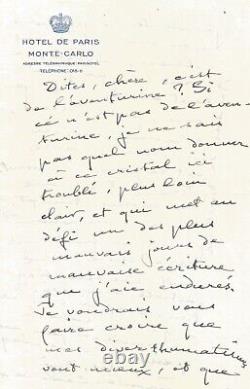 HOTEL DE PARIS
MONTE-CARLO
ADRESSE TÉLÉGRAPHIQUE: PARISOTEL
TÉLÉPHONE: 018-11
Dites, chère, c'est
de l'aventurine ? Si
ce n'est pas de l'aven
turine, je ne sais
pas quel nom donner
à ce cristal ici
troublé, plus loin
clair, et qui met au
défi un des plus
mauvais jours de
mauvaise écriture
que j'aie endurés.
Je voudrais vous
faire croire que
mes divers rhumatismes
vont mieux, et que